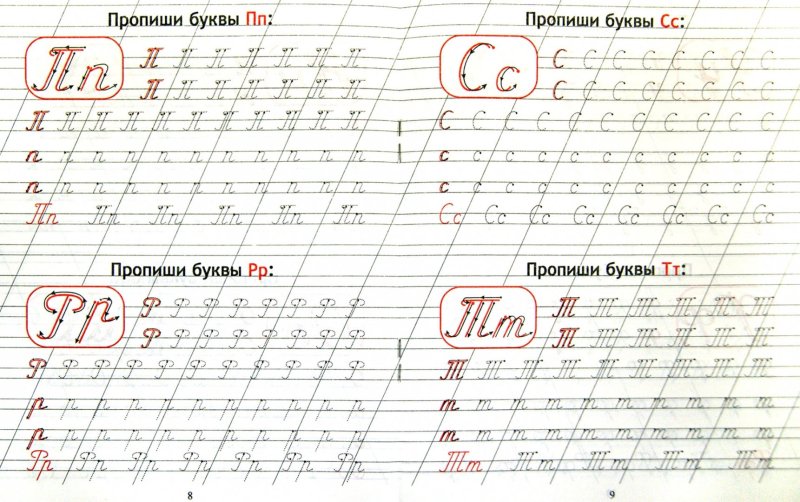 Пропиши буквы Пп:
Пп
П П П П П П П П
П П П П П П П П
П П П П П П П П П П П
п п п п п п п п п п п
п п п п п п п п п п п
Пп Пп Пп Пп Пп Пп
Пропиши буквы Рр:
Рр
Р Р Р Р Р Р Р Р
Р Р Р Р Р Р Р Р
Р Р Р Р Р Р Р Р Р Р Р
р р р р р р р р р р р
р р р р р р р р р р р
Рр Рр Рр Рр Рр Рр Рр
8
Пропиши буквы Сс:
Сс
С С С С С С С С
С С С С С С С С
С С С С С С С С С С С
с с с с с с с с с с с
с с с с с с с с с с с
Сс Сс Сс Сс Сс Сс Сс Сс
Пропиши буквы Тт:
Тт
Т Т Т Т Т Т
Т Т Т Т Т Т
Т Т Т Т Т Т Т Т Т
т т т т т т т т т т
т т т т т т т т т т
Тт Тт Тт Тт Тт
9